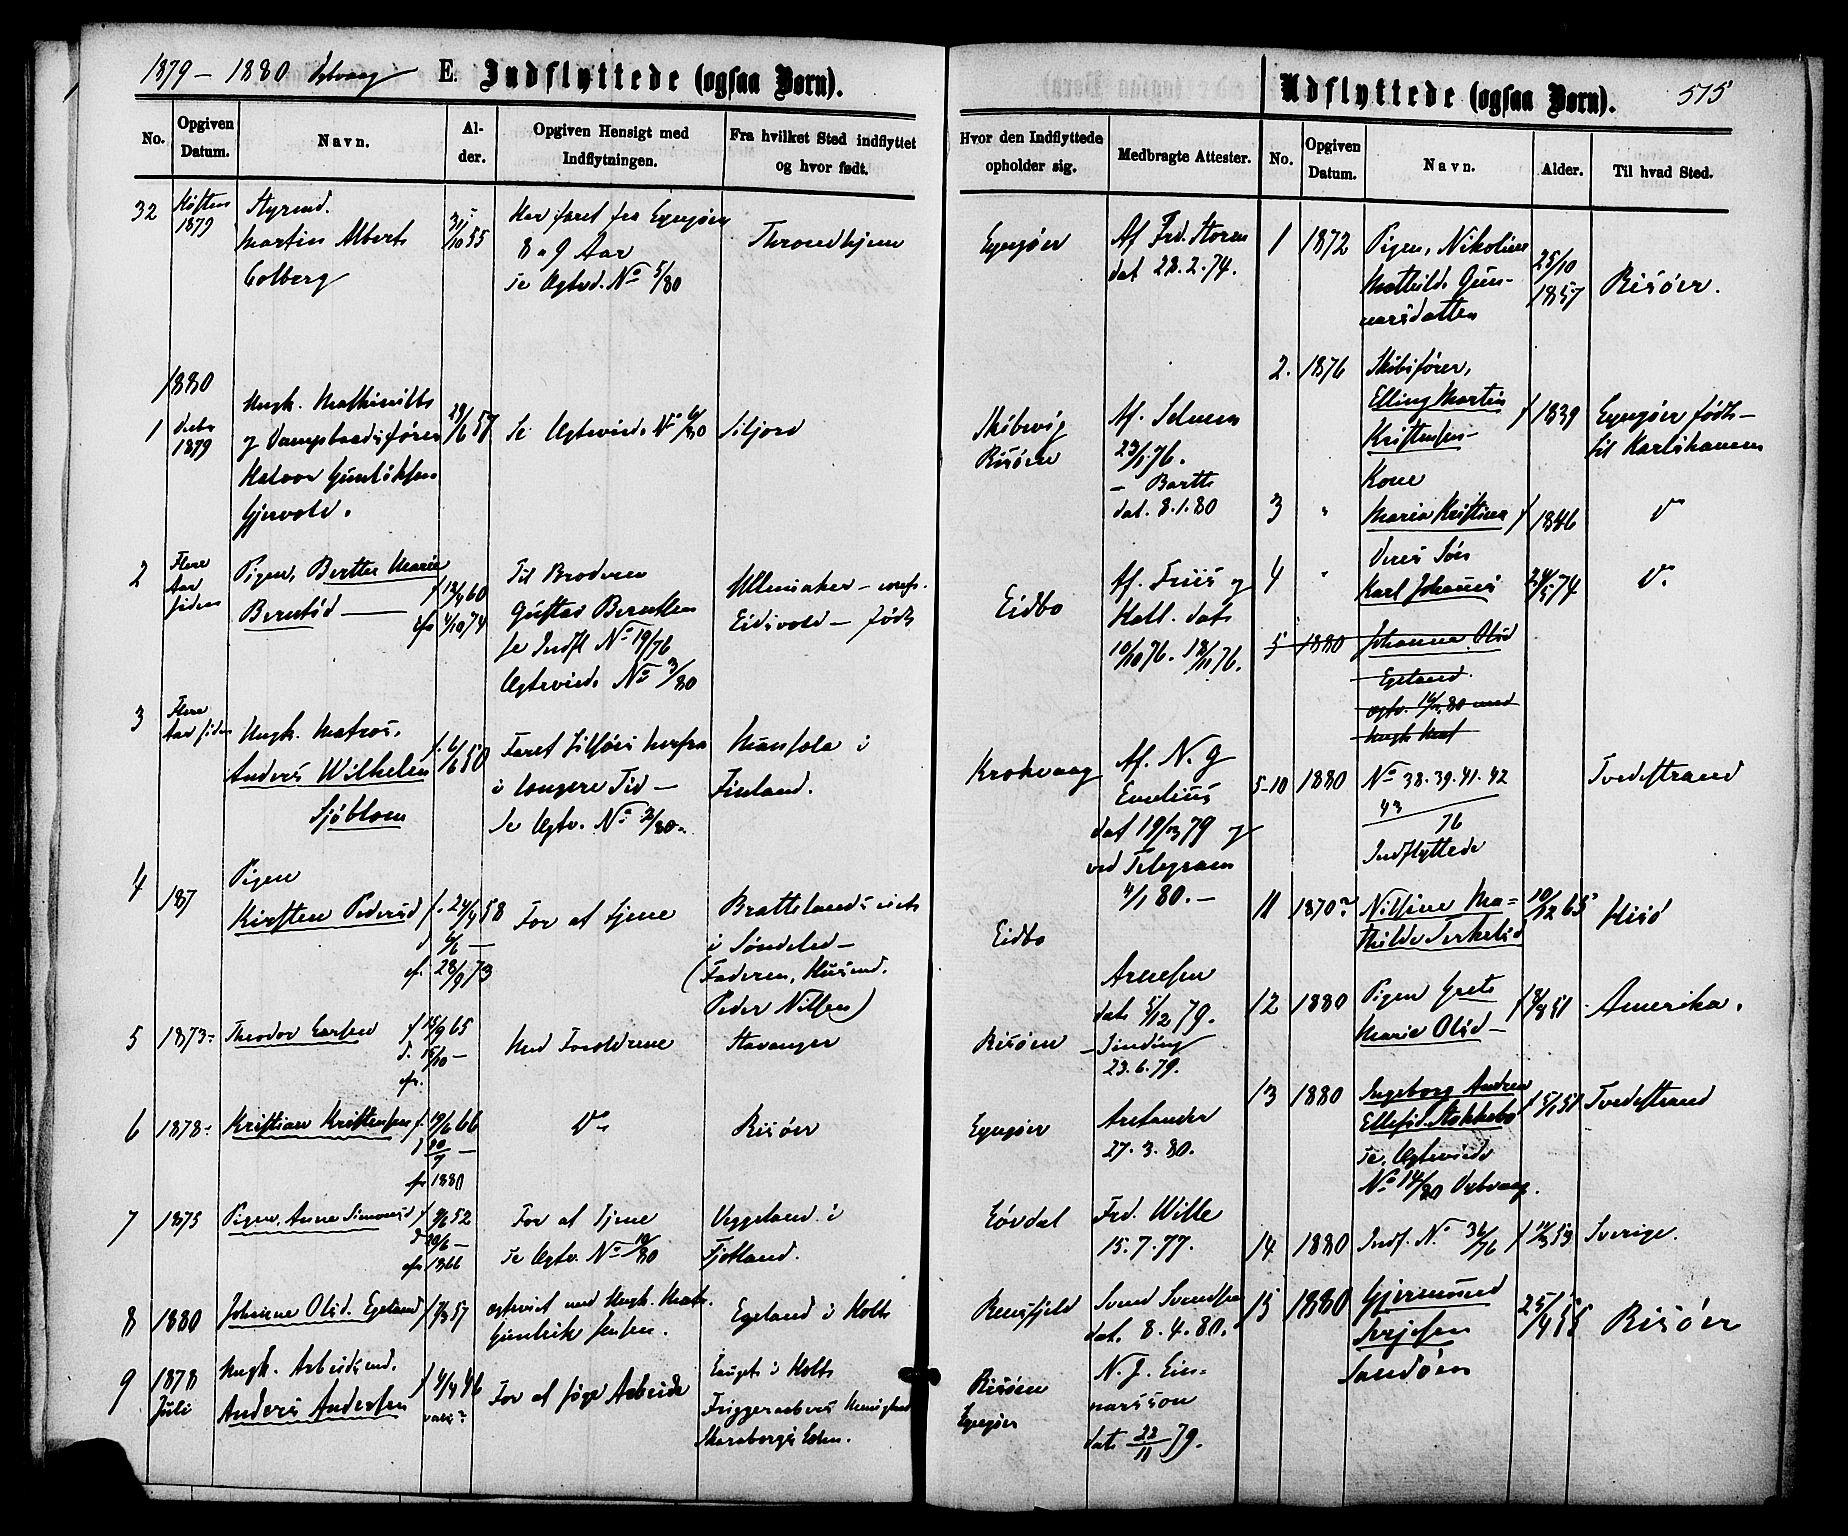 1879 – 1880 E. Indflyttede (ogsaa Børn).
Udflyttede (ogsaa Børn). 515
No.
Opgiven Datum.
Navn.
Al-
der.
Opgiven Hensigt med
Indflytningen.
Fra hvilket Sted indflyttet
og hvor født.
Hvor den Indflyttede
opholder sig.
Medbragte Attester.
No.
Opgiven
Datum.
Navn.
Alder.
Til hvad Sted.
32 Høsten
1879
Styrmd.
Martin Albert
Colberg
31/10 55
Har faret fra Lyngøer
8 a 9 Aar
se Egtevd. No 5/80
Throndhjem
Lyngøer
Af Frd. Storm
dat 28.2.74.
1880
1 Decbr
1879
Ungk.
og Dampbaadsfører
Halvor Gunlöksen
Gjervold.
29/6 57
Se Egteviede No 6/80
Siljord
Skibsvig
Risøen
Af. Selmer
23/1 76.
– Barth
dat. 8.1.80
2 Flere
Aar
siden
Pigen, Berthe Marie
Berntsd –
f 13/4 60
cfr 4/10 74
Til Broderen
Gustav Berntsen
se Indfl No 19/76
Egteviede No 3/80
Ullensaker – conf.
Eidsvold – født
Eidbo
Af. Friis og
Hall. dat.
10/10 76. 18/11 76.
3 Flere
Aar siden
Ungk. Matros.
Anders Wilhelm
Sjöblom
f. 6/6 50
Faret tilsøes herfra
i længere Tid –
Se Egtv. No 2/80.
i
Finland.
Krokvaag
Af. N. G
dat 19/12 79 og
ved Telegram
4/1 80. –
4 187
Pigen
Kirsten Pedersd
f. 24/4 58
d 6/6 –
cfr. 28/9 73
For at tjene
Brattelands eiet
i Søndeled –
(Faderen, Husmd.
Peder Nilsen)
Eidbo
Arnesen
dat. 5/12 79.
5 1873
Theodor Larsen
f 15/9 65
d. 15/10 –
cfr.
Med Forældrene
Stavanger
Risøen
– Sinding
23.6.79.
6 1878
Kristian Kristensen
f. 19/6 66
d 20/7 –
cfr 1880
Do
Risøer
Lyngøer
Arctander
27.3.80.
7 1875
Pigen. Anne Simonsd
f 9/6 52
d 20/6 –
cfr 1866
For at tjene
se Egtv. No 10/80
Veggeland i
Fjotland.
Løvdal
Frd. Wille
15.7.77.
8 1880
Johanne Olsd. Egeland
f 7/3 57
egteviet med Ungk. Matr.
Gundrik Jensen.
Egeland i Holt
Rensfjeld
Svend Svendsen
dat. 8.4.80.
9 1878
Juli
Ungk. Arbeidsmd.
Anders Andersen
f 4/4 46
vacc?
For at søge Arbeide
Lunget i Holt
Skaraborgs Lehn.
Risøen
Lyngøer
N. J. Ein-
narsson
dat. 22/11 79.
1 1872
Pigen, Nikoline
Mathilde Gun-
narsdatter
25/10
1857
Risøer.
2. 1876
Skibsfører,
Elling Martin
Kristensen –
f 1839
Lyngøer født –
til Karlshamn
3 "
Kone
Maria Kristina
f 1846
Do
4 "
Deres Søn
Karl Johannes
24/5 74
Do.
5 1880 Johanne Olsd
Egeland.
egtv. 16/4 80 med
Ungk Mat
5-10 1880
No 38.39.41.42
43
76
Indflyttede
Tvedestrand
11 1870?
Nilsine Ma=
thilde Terkelsd
10/12 65
Hisö
12 1880
Pigen Grete
Marie Olsd –
f 8/8 51
Amerika.
13 1880
Ingeborg Andrea
Ellefsd. Stokkebo
se, Egteviede
No 14/80 Dybvaag.
f 5/1 51
Tvedestrand
14 1880
Indf. No 36/76
f 11/3 53
Sverige.
15 1880
Gjermund
Terjesen
Sandøen
25/4 55
Risøer